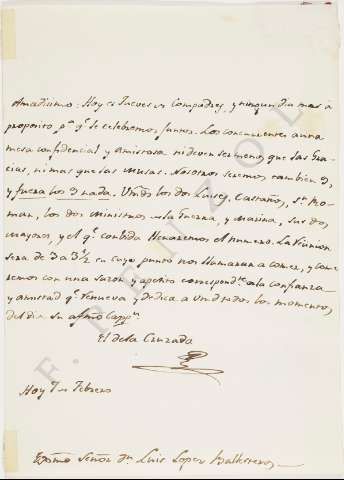 Amadísimo: Hoy es Jueves de Compadres, y ningun dia mas à
proposito pa. qe. se celebremos juntos. Los concurrentes a una
mesa confidencial y amistosa ni deven ser menos que las Gra-
cias, ni mas que las Musas. Nosotros seremos tambien 9,
y fuera los 9 nada. Vmd. los dos Luises, Castaños, Sn. Ro-
man, los dos Ministros de la Guerra, y Marina, sus dos
mayores, y el qe. convida llenaremos el numero. La reunion
sera de 3 a 3½ en cuyo punto nos llamaran a comer, y come-
remos con una sazon y apetito correspondte. a la confianza
y amistad qe. renueva y dedica a Vmd. todos los momentos,
del dia su afmo. Cappn.
El de la Cruzada
Hoy 7 de Febrero
Exmo Señor Dn. Luis Lopez Ballesteros
F. RENZOL